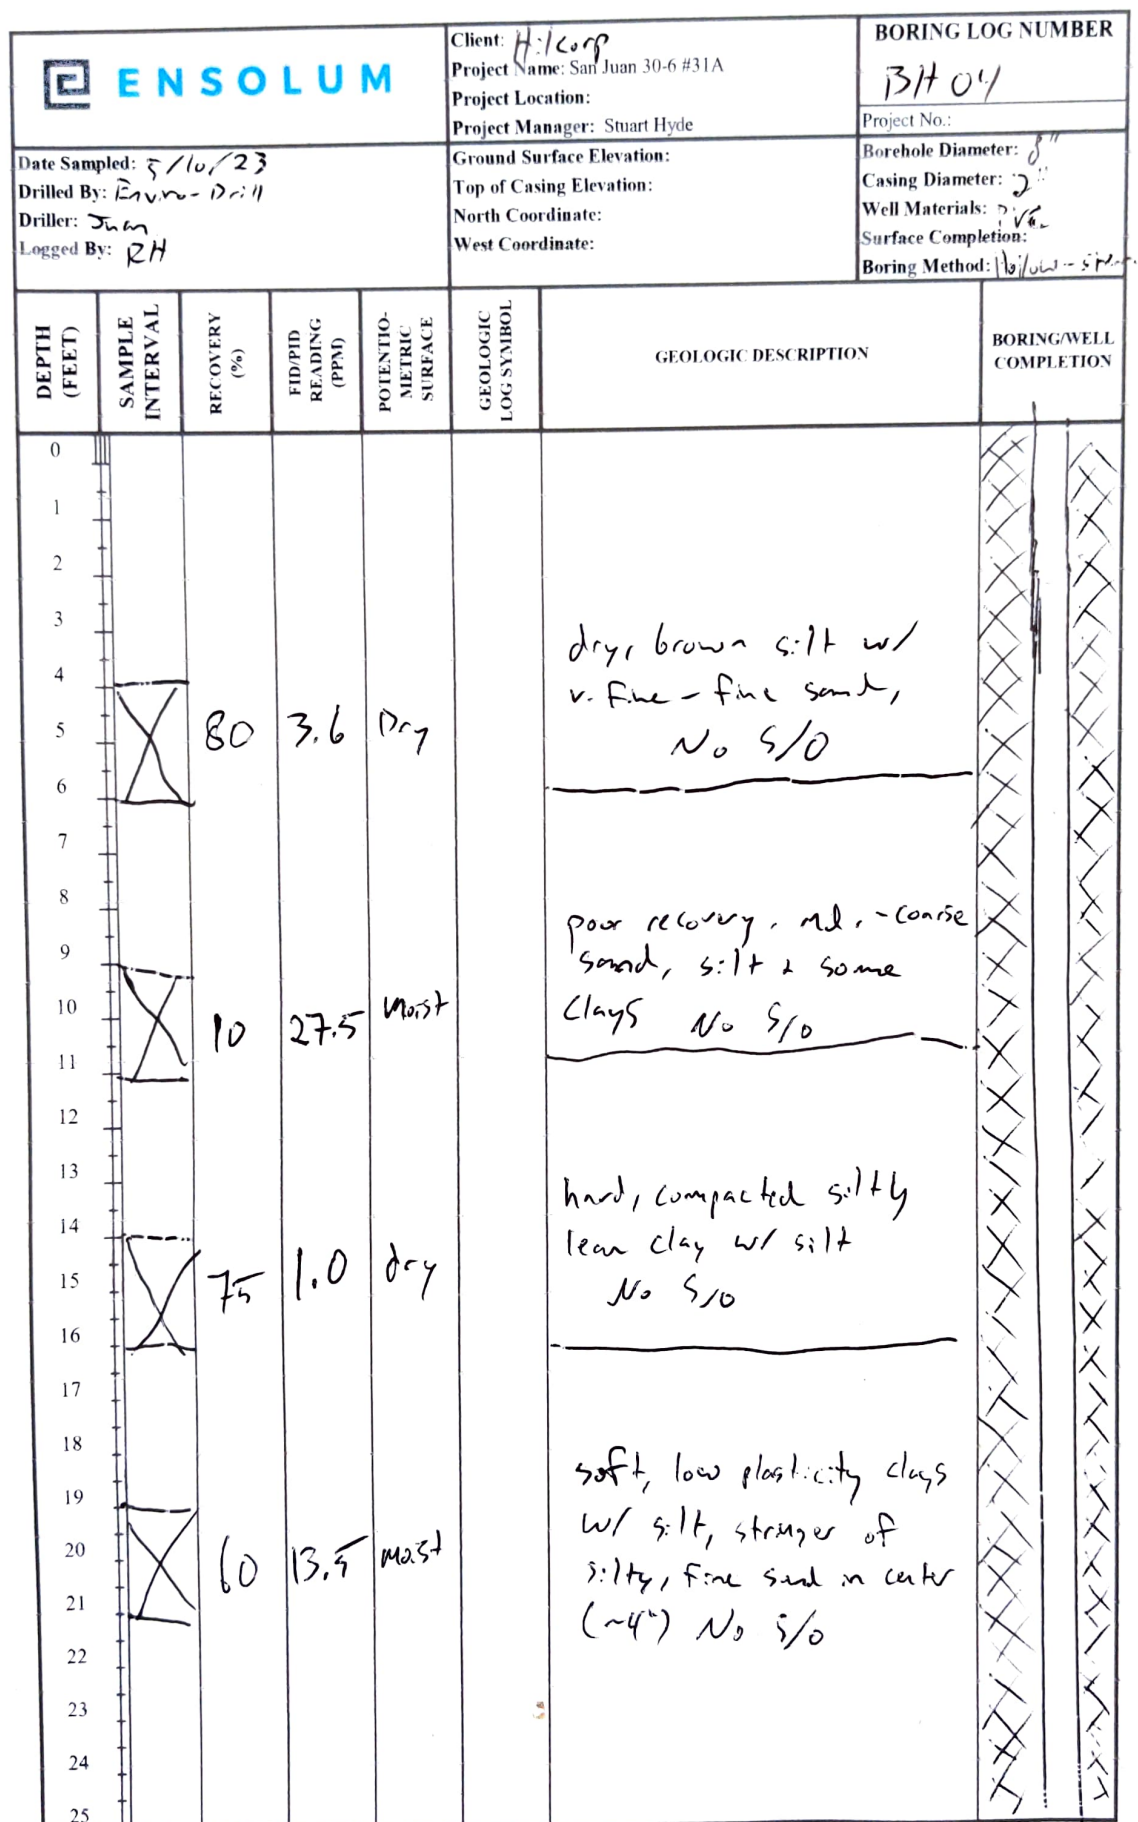 ENSOLUM
Client: Hilcorp
Project Name: San Juan 30-6 #31A
Project Location:
Project Manager: Stuart Hyde
BORING LOG NUMBER
BH 04
Project No.:
Date Sampled: 5/10/23
Drilled By: Enviro-Drill
Driller: Juan
Logged By: RH
Ground Surface Elevation:
Top of Casing Elevation:
North Coordinate:
West Coordinate:
Borehole Diameter: 8"
Casing Diameter: 2"
Well Materials: PVC
Surface Completion:
Boring Method: Hollow-
DEPTH (FEET)
SAMPLE INTERVAL
RECOVERY (%)
FID/PID READING (PPM)
POTENTIO-METRIC SURFACE
GEOLOGIC LOG SYMBOL
GEOLOGIC DESCRIPTION
BORING/WELL COMPLETION
0
1
2
3
dry, brown silt w/
4
v. fine - fine sand,
5 80 3.6 Dry No S/O
6
7
8
poor recovery, md. - coarse
9
sand, silt & some
10 10 27.5 moist clays No S/O
11
12
13
hard, compacted siltly
14
lean clay w/ silt
15 75 1.0 dry No S/O
16
17
18
soft, low plasticity clays
19
w/ silt, stringer of
20 60 13.5 moist silty, fine sand in center
21
(~4") No S/O
22
23
24
25